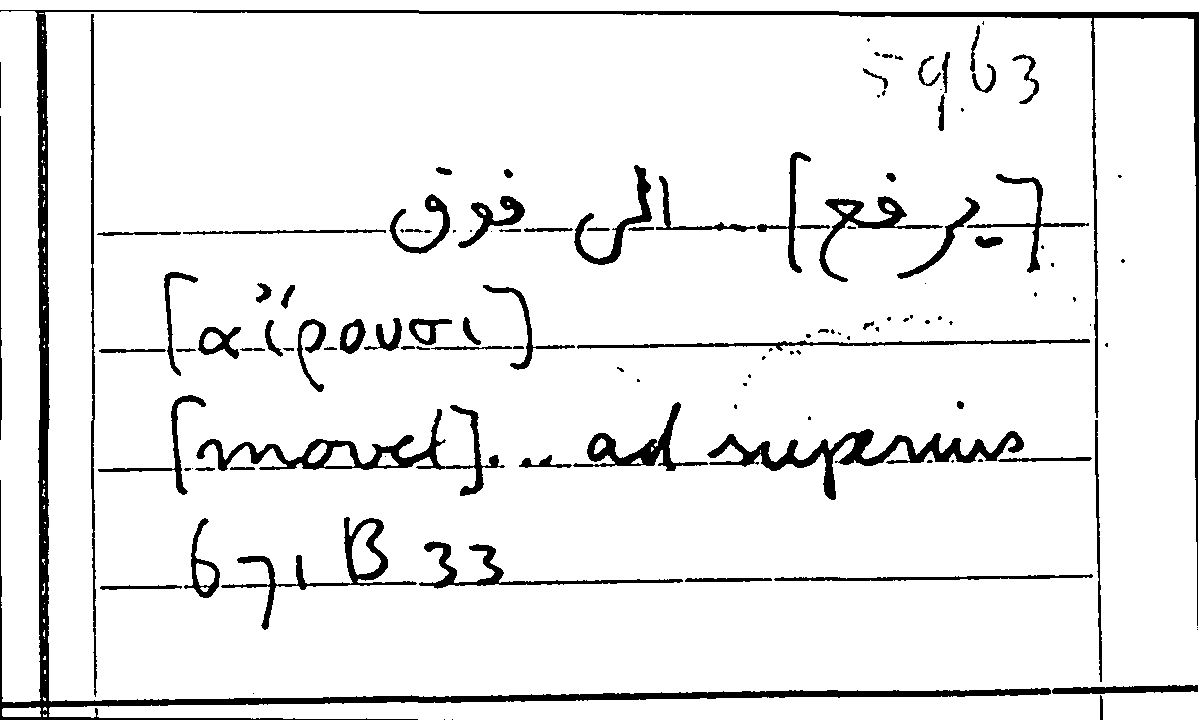 5963
[يرفع] .... الى فوق
[αἴρουσι]
[movet]... ad superius
671 B 33